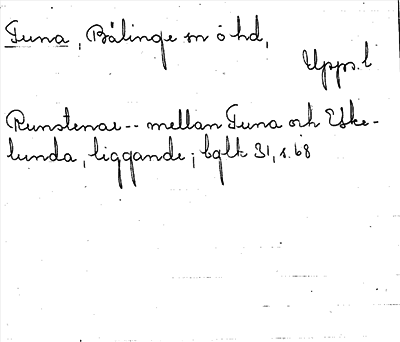 Tuna, Bälinge sn o hd,
Upps. l
Runstenar -- mellan Tuna och Eske-
lunda, liggande; bglk 31, s. 68